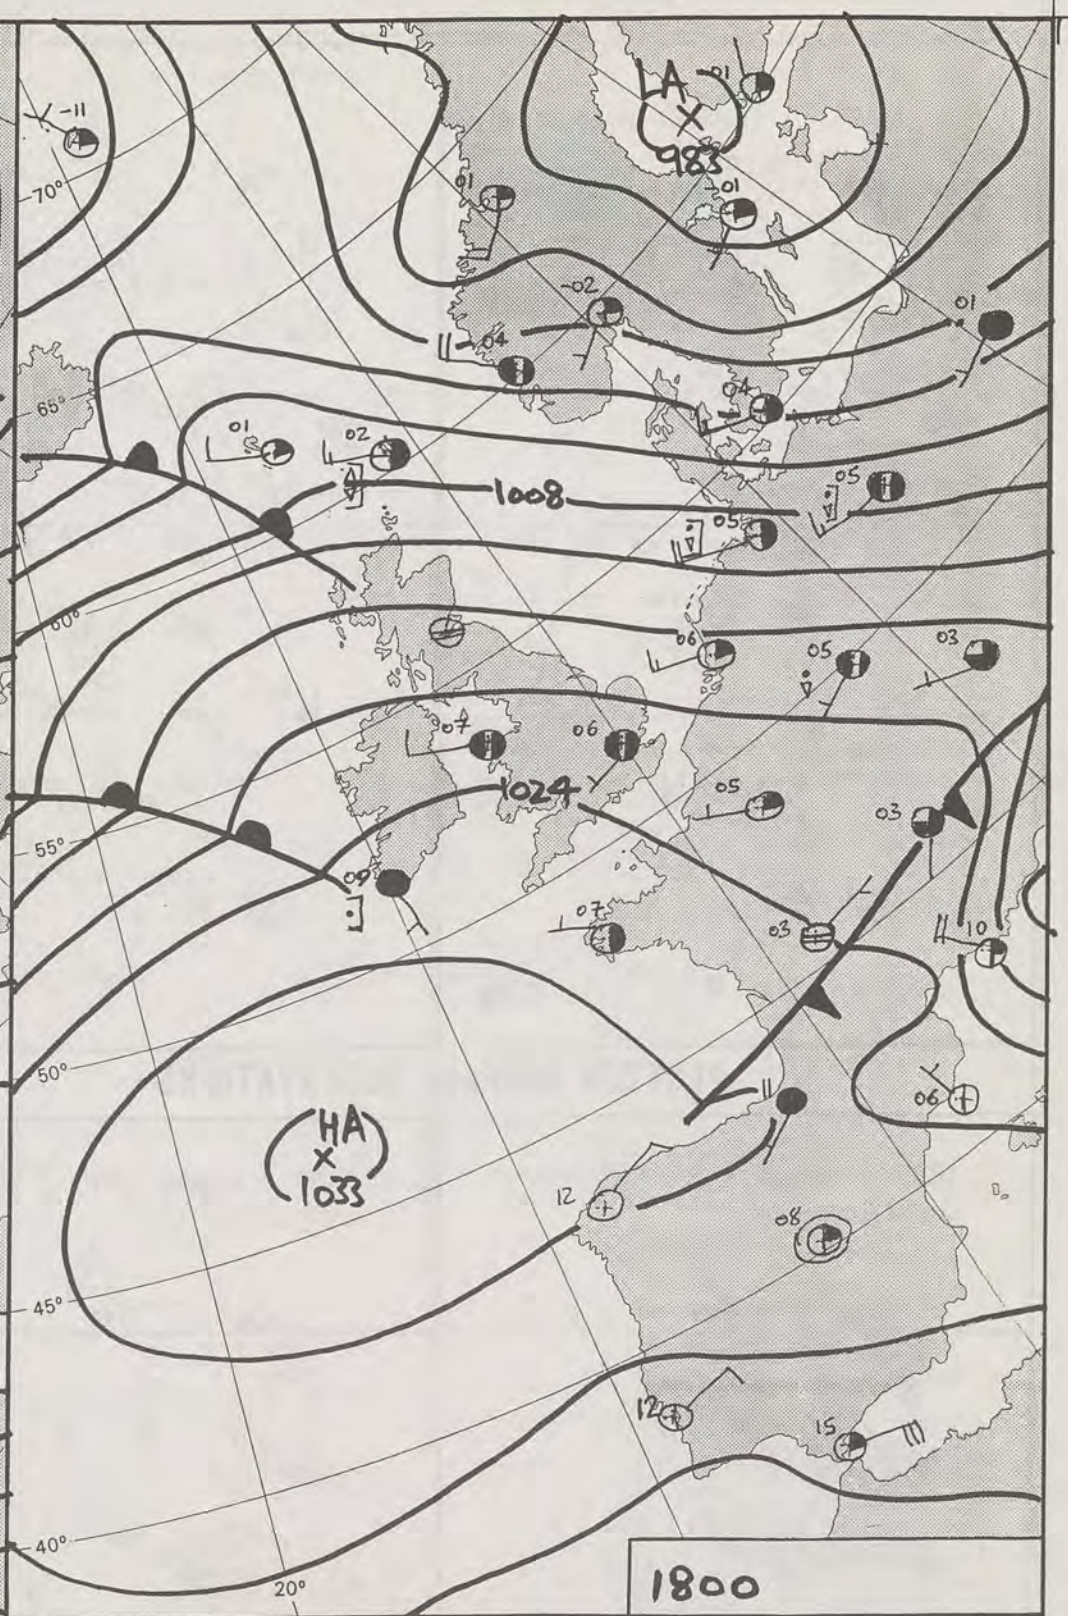 LA
01
983
-11
70°
01
-01
-02
01
04
65°
04
01
02
05
1008
05
60°
06
05
03
07
06
1024
05
03
55°
09
07
03
10
50°
11
06
HA
1033
12
08
45°
12
15
40°
20°
1800